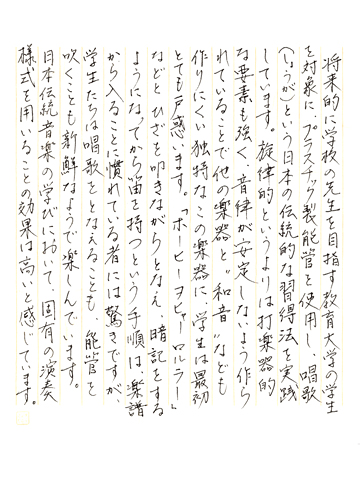 将来的に学校の先生を目指す教育大学の学生
を対象に、プラスチック製能管を使用し、唱歌
(しょうが)という日本の伝統的な習得法を実践
しています。旋律的というよりは打楽器的
な要素も強く、音律が安定しないよう作ら
れていることで他の楽器と"和音"なども
作りにくい独特なこの楽器に、学生は最初
とても戸惑います。「ホーヒーヲヒャーロルラー」
などとひざを叩きながらとなえ、暗記をする
ようになってから笛を持つという手順は、楽譜
から入ることに慣れている者には驚きですが、
学生たちは唱歌をとなえることも、能管を
吹くことも新鮮なようで楽しんでいます。
日本伝統音楽の学びにおいて、固有の演奏
様式を用いることの効果は高いと感じています。